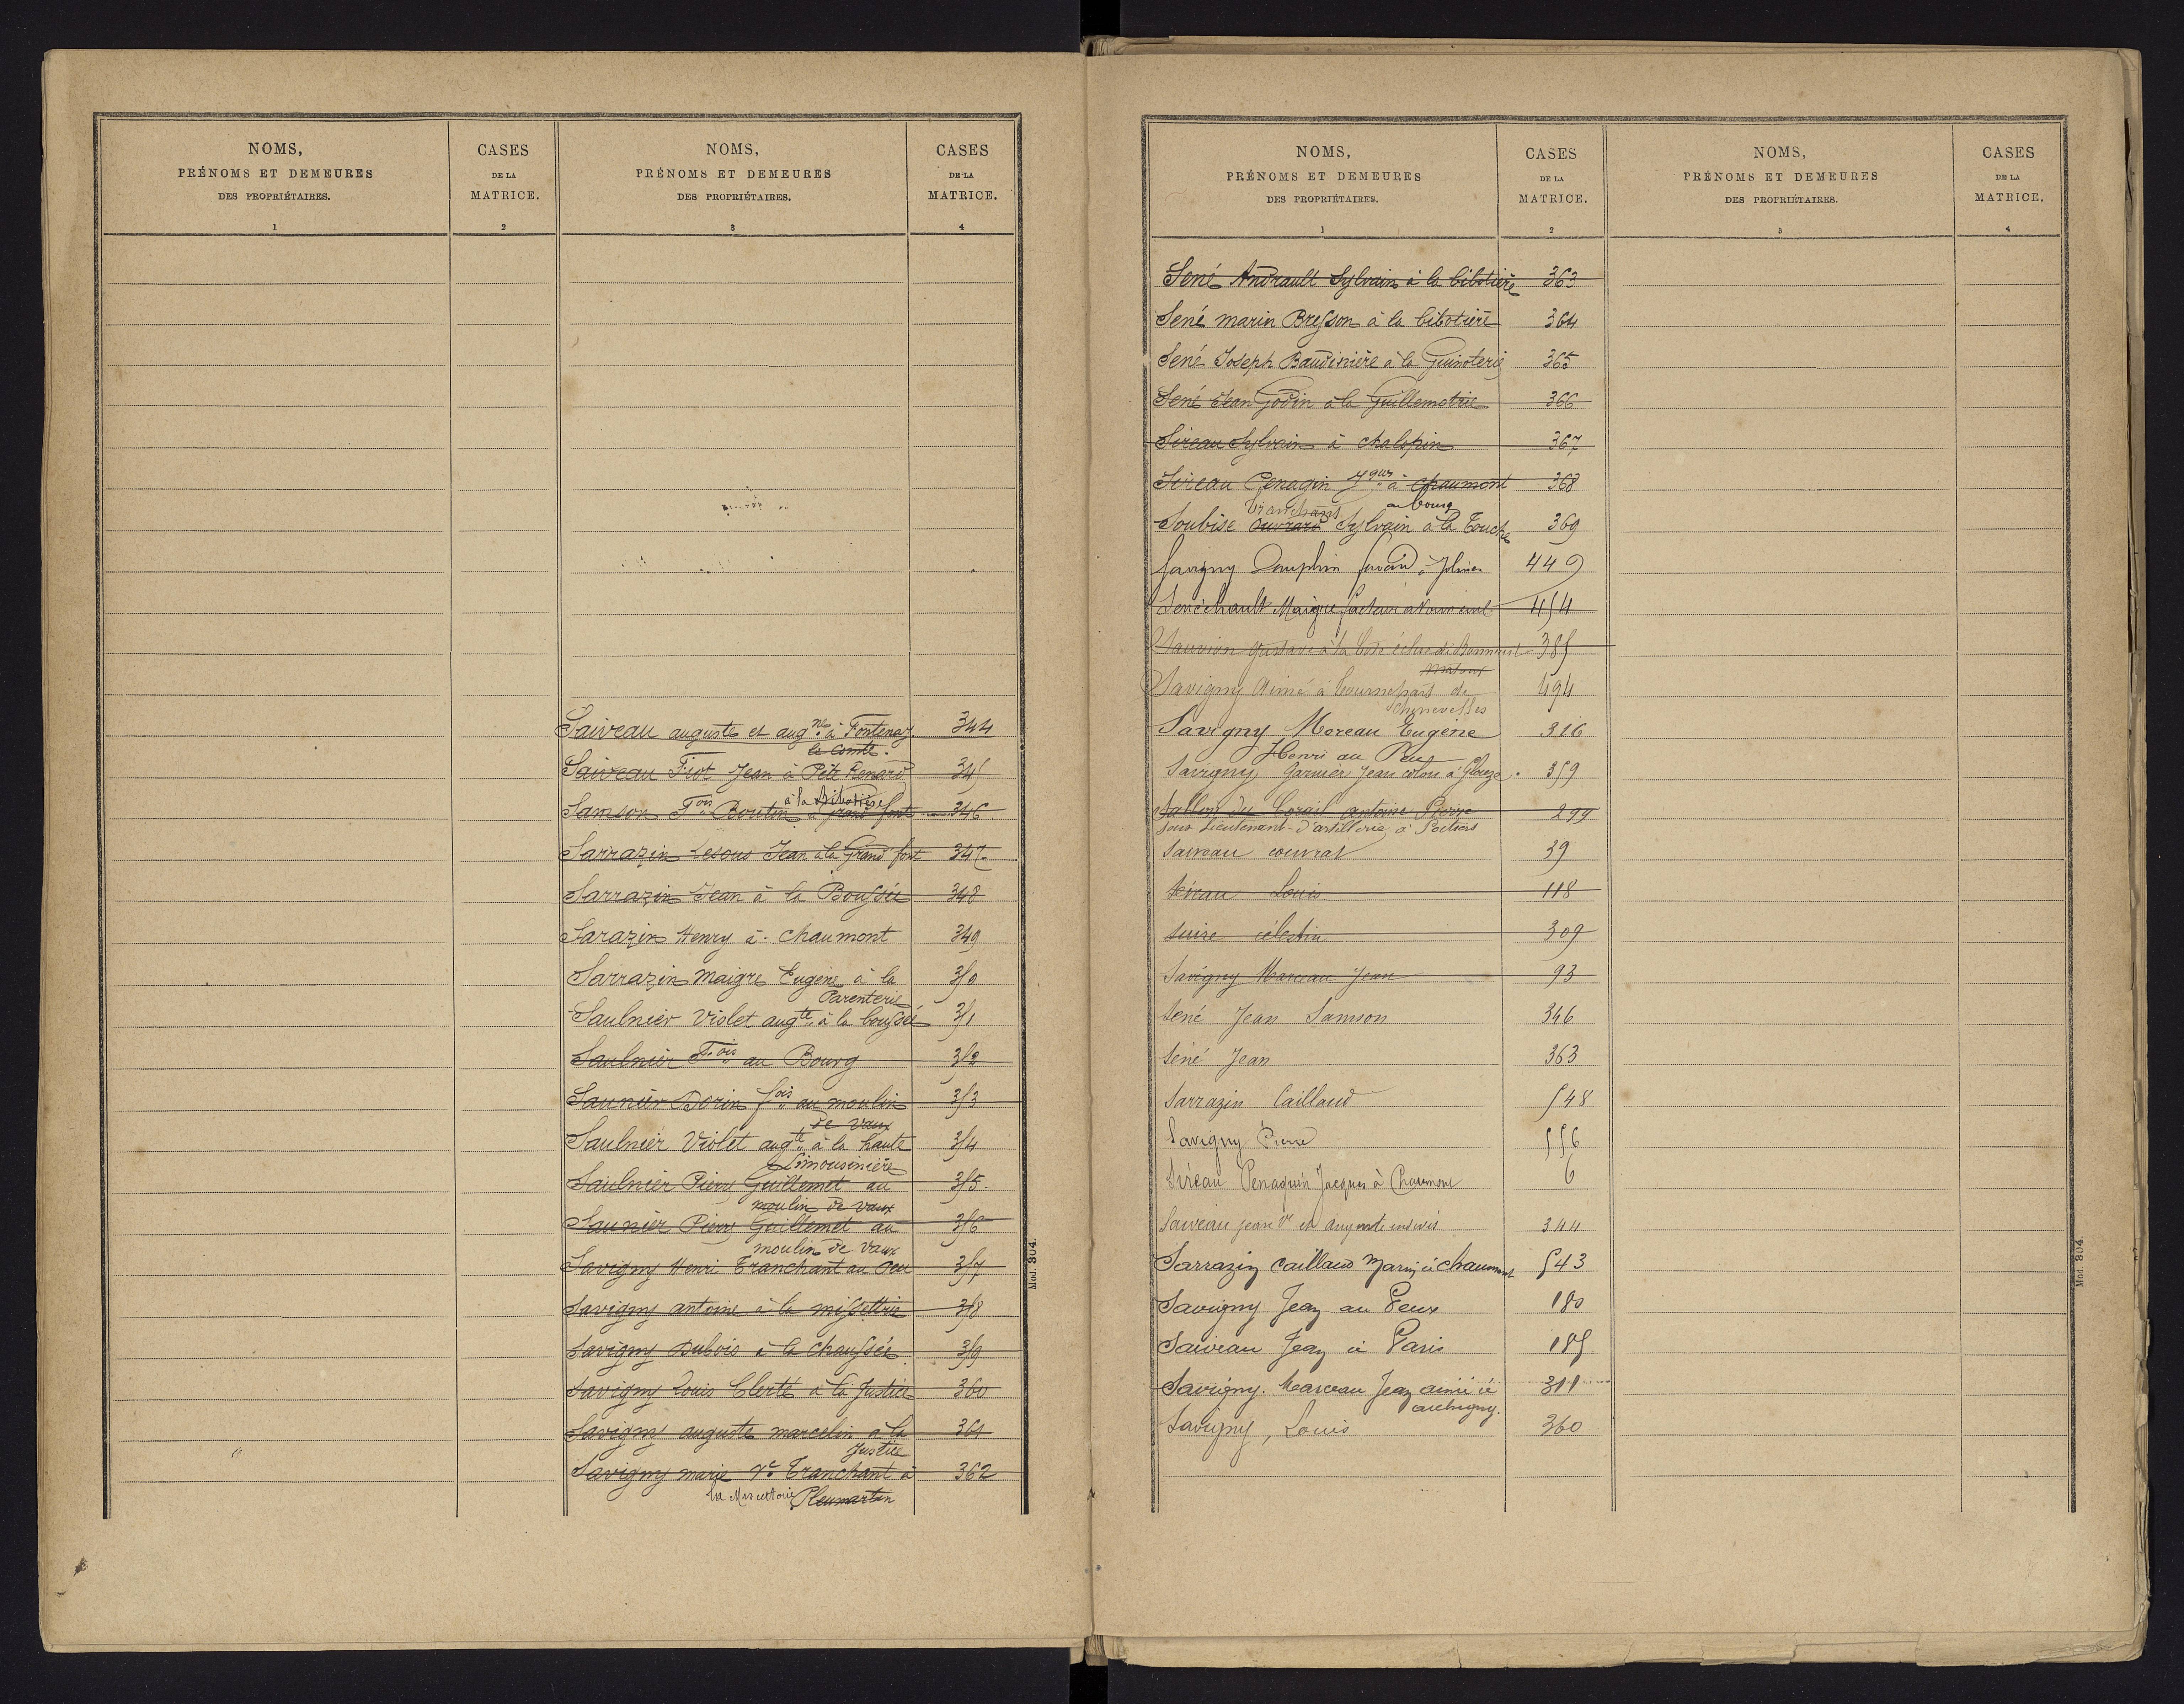 NOMS,
PRÉNOMS ET DEMEURES
DES PROPRIÉTAIRES.
1
CASES
DE LA
MATRICE.
2
NOMS,
PRÉNOMS ET DEMEURES
DES PROPRIÉTAIRES.
3
CASES
DE LA
MATRICE.
4
Saiveau auguste et aug.ne à Fontenay 344
le Comte.
Saiveau Fiot Jean à Petit Renard 345
à la Bibotière
Samson F.ois Boutin à grand font 346
Sarrazin Lesous Jean à la Grand font 347
Sarrazin Jean à la Boussée 348
Sarazin Henry à chaumont 349
Sarrazin Maigre Eugène à la 350
Parenterie
Saulnier Violet aug.te à la boussée 351
Saulnier F.ois au Bourg 352
Saunier Dorin f.ois au moulin 353
de vaux
Saulnier Violet aug.te à la haute 354
Limousinière
Saulnier Pierre Guillemet au 355
moulin de vaux
Saunier Pierre Guillemet au 356
moulin de vaux
Savigny Henri Tranchant au Peu 357
Savigny antoine à la missettrie 358
Savigny Dubois à la Chaussée 359
Savigny Louis Clerté à la Justice 360
Savigny auguste marcelin à la 361
Justice
Savigny marie Ve Tranchant à 362
la Missetterie Pleumartin
Mod. 304.
NOMS,
PRÉNOMS ET DEMEURES
DES PROPRIÉTAIRES.
1
CASES
DE LA
MATRICE.
2
NOMS,
PRÉNOMS ET DEMEURES
DES PROPRIÉTAIRES.
3
CASES
DE LA
MATRICE.
4
Sené Andrault Sylvain à la bibotière 363
Sené marin Bresson à la bibotière 364
Sené Joseph Baudinière à la Guinoterie 365
Sené Jean Godin à la Guillemotrie 366
Sireau Sylvain à chalopin 367
Sireau Penagin Jques à chaumont 368
Tranchant au bourg
Soubise Ouvrard Sylvain à la Touche 369
Savigny Dauphin 449
Senéchault Maigre facteur 454
Sauvion Gustave à la 385
Savigny Aimé à bournepart de 494
Chenevelles
Savigny Moreau Eugène 316
Henri au Peu
Savigny Garnier Jean colon à 359
Sallon du Corail antoine Pierre 299
sous Lieutenant d'artillerie à Poitiers
Saiveau couvrat 39
Sireau Louis 118
Suire célestin 309
Savigny Marceau Jean 93
Sené Jean Samson 346
Sené Jean 363
Sarrazin Caillaud 548
Savigny Pierre 556
Sireau Penaguin Jacques à Chaumont 6
Saiveau Jean Ve et 344
Sarrazin Caillaud Marin à chaumont 543
Savigny Jean au Peux 180
Saiveau Jean à Paris 185
Savigny Marceau Jean aimé à 311
archigny.
Savigny, Louis 360
Mod. 304.